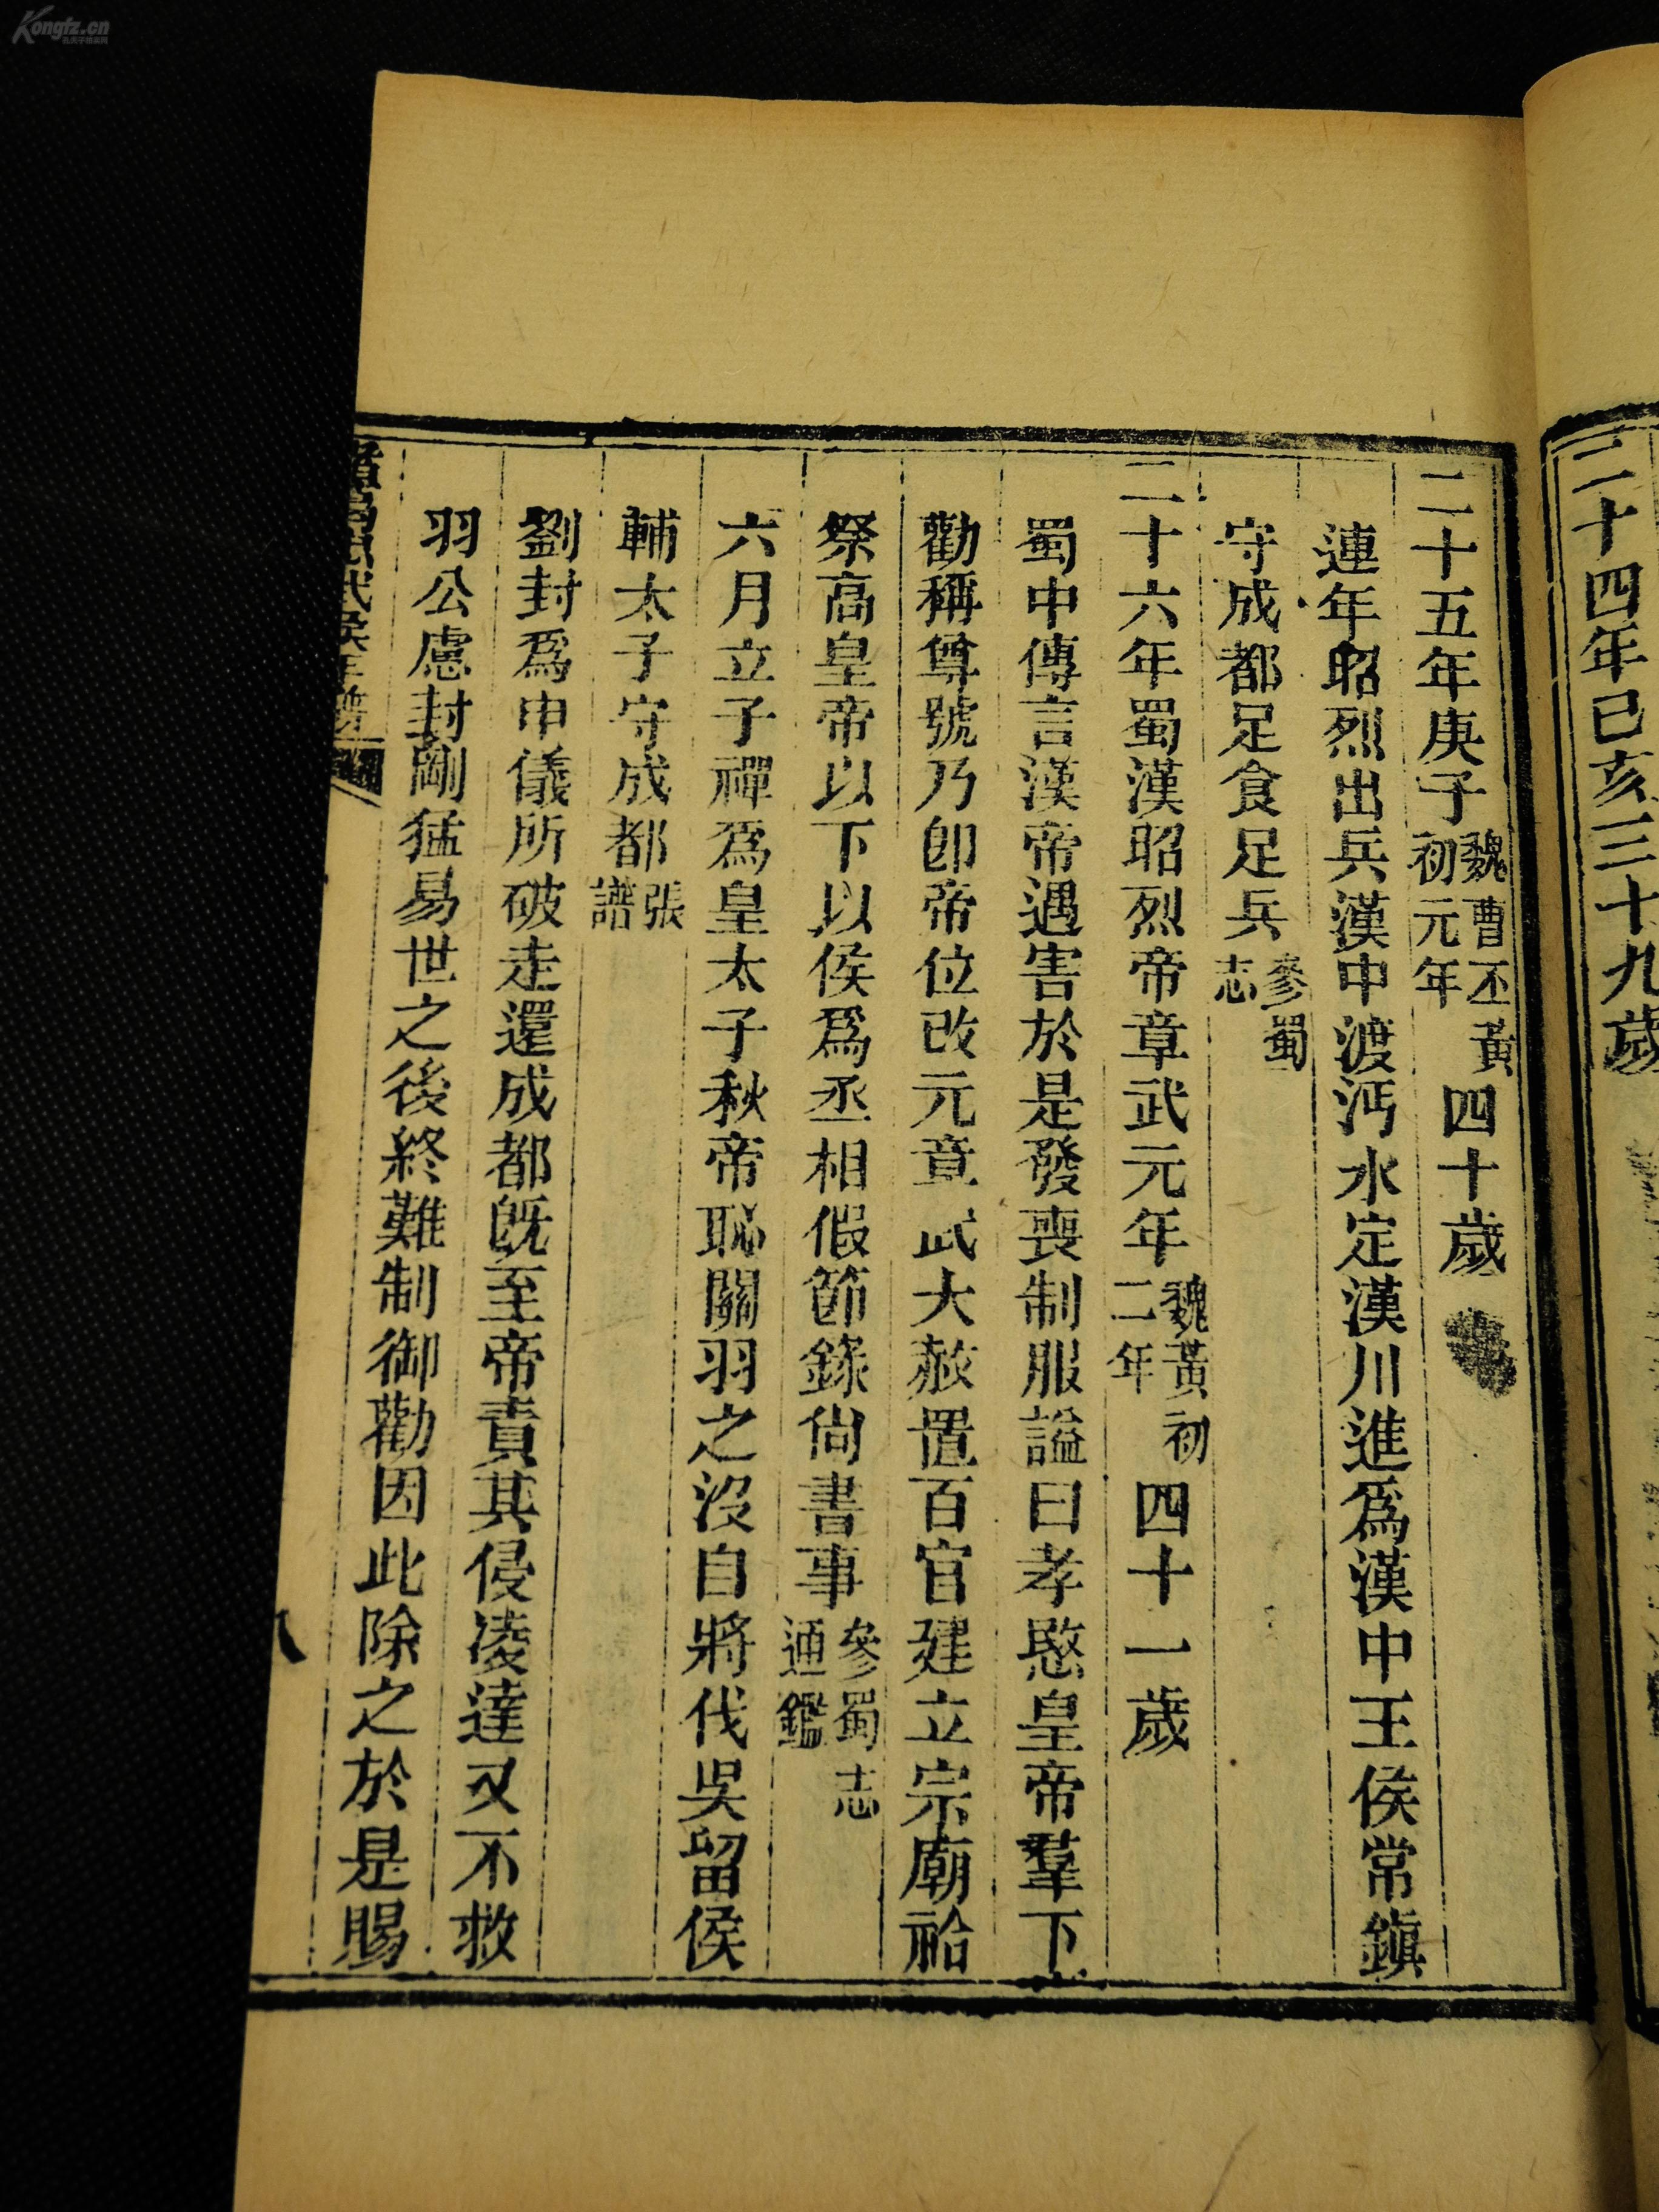 二十四年己亥三十九歲
二十五年庚子魏曹丕黃初元年四十歲
連年昭烈出兵漢中渡沔水定漢川進爲漢中王侯常鎭
守成都足食足兵參蜀志
二十六年蜀漢昭烈帝章武元年魏黃初二年四十一歲
蜀中傳言漢帝遇害於是發喪制服謚曰孝愍皇帝羣下
勸稱尊號乃卽帝位改元章武大赦置百官建立宗廟祫
祭高皇帝以下以侯爲丞相假節錄尙書事參蜀志通鑑
六月立子禪爲皇太子秋帝恥關羽之沒自將伐吳留侯
輔太子守成都張譜
劉封爲申儀所破走還成都旣至帝責其侵凌達又不救
羽公慮封剛猛易世之後終難制御勸因此除之於是賜
諸葛忠武侯年譜
八
Kongfz.cn